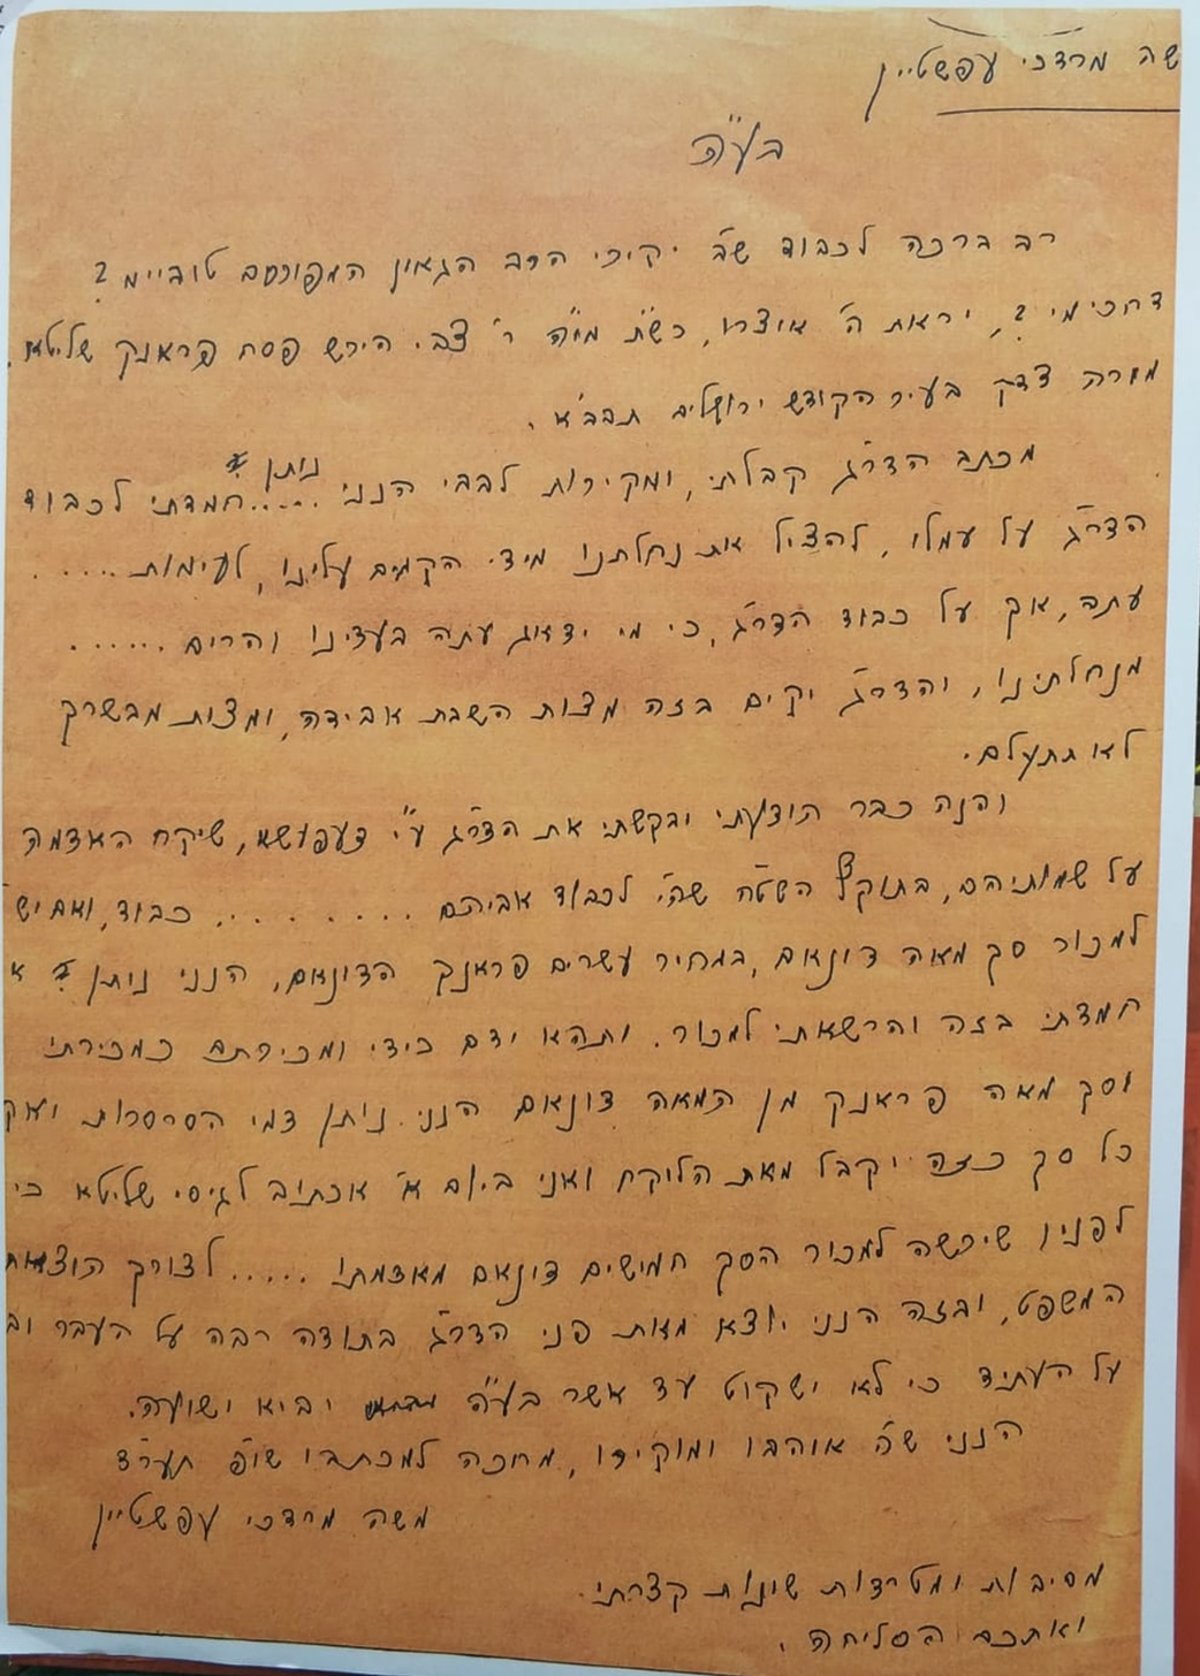 שה מרדכי עפשטיין
בע"ה
רב ברכה לכבוד ש"ב יקירי הרב הגאון המפורסם טוביימי?
דחכימי?, יראת ה' אוצרו, כש"ת מו"ה ר' צבי הירש פסח פראנק שליטא.
מורה צדק בעיר הקודש ירושלים תבב"א.
מכתב הדר"ג קבלתי, ומקירות לבבי הנני ..... נותן חמדתי לכבוד
הדר"ג על עמלו, להציל את נחלתנו מידי הקמים עלינו, לעימות .....
עתה, אך על כבוד הדר"ג, כי מי ידאוג עתה בעדינו והרים ......
מנחלתינו, והדר"ג יקים בזה מצות השבת אבידה, ומצות מבשרך
לא תתעלם.
והנה כבר הודעתי ובקשתי את הדר"ג ע"י דעפושא, שיקח האדמה
על שמותיהם, בתוקף השטח שהי' לכבוד אביהם ........ כבוד, ואם יש
למכור סך מאה דונאם, במחיר עשרים פראנק הדונאם, הנני ניתן ? א
חמדתי בזה והרשאתי למכור. ותהא ידם כידי ומכירתם כמכירתי
וסך מאה פראנק מן המאה דונאם הנני נותן דמי הסרסרות ואך
כל סך כזה יקבל מאת הלוקח ואני ביום א' אכתוב לגיסי שליטא כי
לפניו שירשה למכור הסך חמישים דונאם מאדמתו ..... לצורך הוצאות
המשפט, ובזה הנני יוצא מאת פני הדר"ג בתודה רבה על העבר וב
על העתיד כי לא ישקוט עד אשר בע"ה יביא ישועה.
הנני ש"ב אוהבו ומוקירו, מחכה למכתבו שופ תער"ב
משה מרדכי עפשטיין
מסיבות ומטרדות שונות קצרתי.
ואתכם הסליחה.